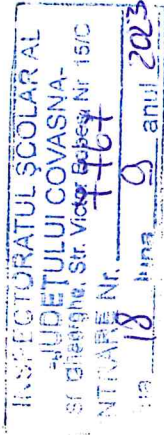 INSPECTORATUL ŞCOLAR AL
JUDEŢULUI COVASNA-
Gheorghe, Str. Victor Babeş, Nr 15/C
INTRARE Nr. 7767
18 luna 9 anul 2023